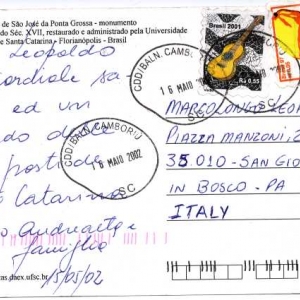 de São José da Ponta Grossa - monumento
do Séc. XVII, restaurado e administrado pela Universidade
e Santa Catarina - Florianópolis - Brasil
Brasil 2001
R$ 0,55
CDD/BALN. CAMBORIÚ
16 MAIO 2002
SC
CDD/BALN. CAMBORIÚ
16 MAIO 2002
SC
Leopoldo
cordiale sa
ed un
do dal
postide
Catarina
Andreatta e
famiglia
15/05/02
MARCO LONGI LEO
PIAZZA MANZONI, 2
35010-SAN GIO
IN BOSCO - PA
ITALY
tas.dnex.ufsc.br